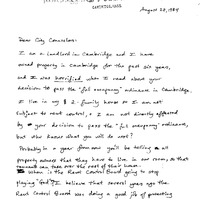 August 28, 1984
Dear City Councilors:
I am a landlord in Cambridge and I have
owned property in Cambridge for the past six years,
and I was horrified when I read about your
decision to pass the "full occupancy" ordinance in Cambridge.
I live in my 2-family house so I am not
subject to rent control, & I am not directly affected
by your decision to pass the "full occupancy" ordinance,
but who knows what you will do next?
Probably in a year from now you'll be telling all
property owners that they have to live in one room, so that
can take over the rest of their house.
When is the Rent Control Board going to stop
playing "God"? I believe that several years ago the
Rent Control Board was doing a good job of protecting